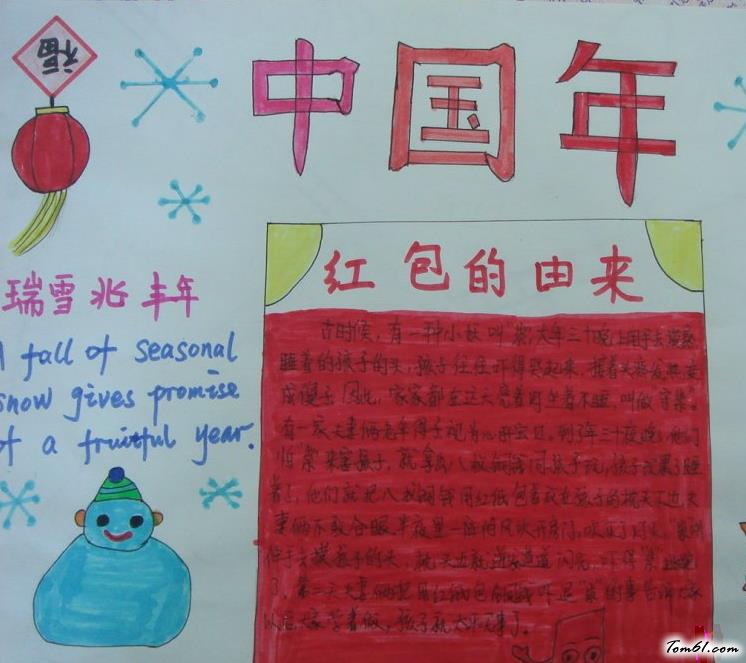 福
中国年
红包的由来
瑞雪兆丰年
A fall of seasonal
snow gives promise
of a fruitful year.
古时候，有一种小妖叫祟，大年三十晚上用手去摸熟
睡着的孩子的头，孩子往往吓得哭起来，接着头疼发热，变
成傻子，因此，家家都在这天亮着灯坐着不睡，叫做守祟。
有一家夫妻俩老年得子视为心肝宝贝。到了年三十夜晚，他们
怕"祟"来害孩子，就拿出八枚铜钱同孩子玩，孩子玩累了睡
着了，他们就把八枚铜钱用红纸包着放在孩子的枕头下边，夫
妻俩不敢合眼，半夜里一阵阴风吹开房门，吹灭了灯火，
伸手去摸孩子的头，枕头边就道道闪光，吓得"祟"逃跑
了。第二天夫妻俩把用红纸包钱吓退"祟"的事告诉大家
以后大家学着做，孩子就太平无事了。
Tom61.com